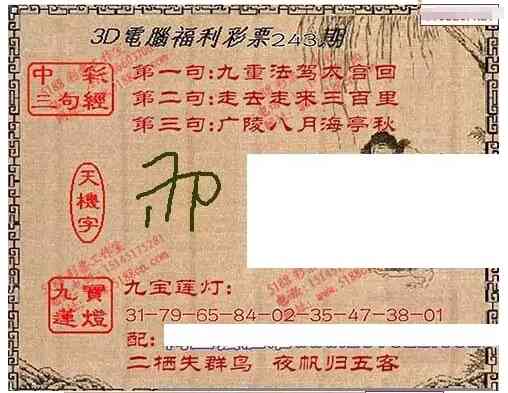 3D電腦福利彩票243期
中彩
三句經
第一句:九重法驾太宫回
第二句:走去走来三百里
第三句:广陵八月海亭秋
天機字
九寶
蓮燈
九宝莲灯:
31-79-65-84-02-35-47-38-01
配:
二栖失群鸟 夜帆归五客